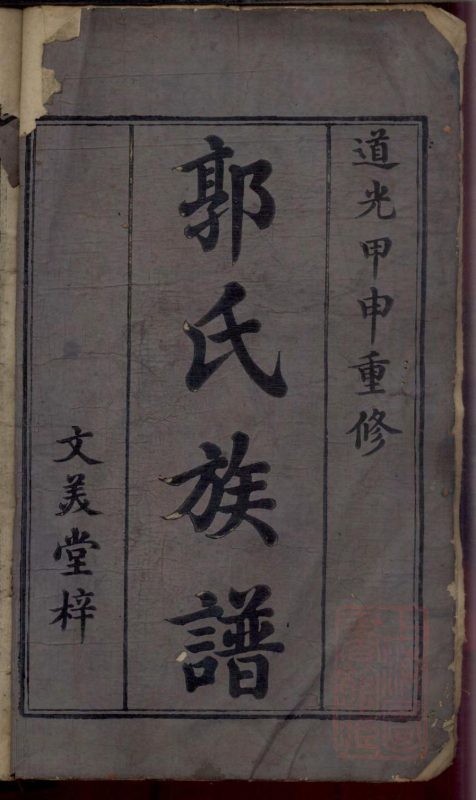 道光甲申重修
郭氏族譜
文美堂梓